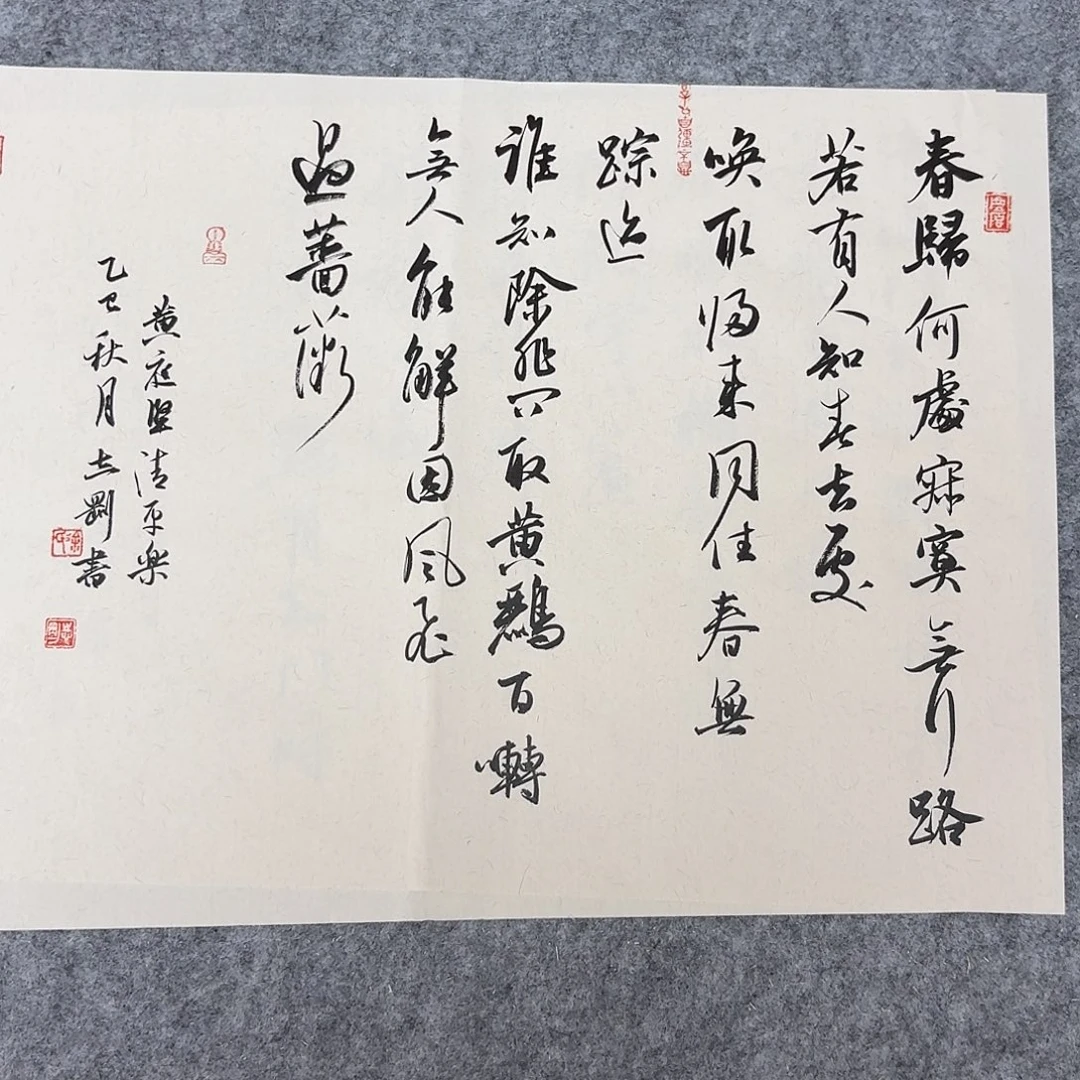 春歸何處寂寞無行路
若有人知春去处
喚取歸来同住春無
踪迹
誰知除非問取黄鸝百囀
無人能解因風飛
過薔薇
黄庭堅清平樂
乙巳秋月志剛書